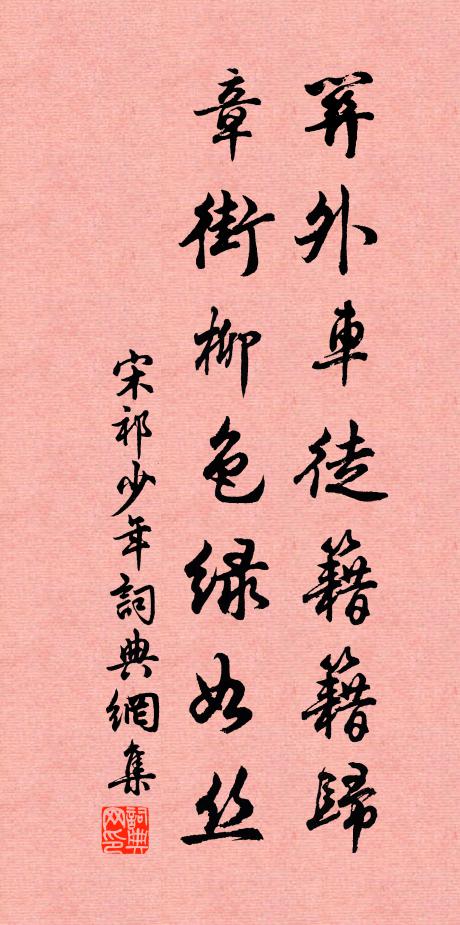 外車徒籍籍歸
章街柳色绿如丝
宋祁少年詞典網集
詞典网印